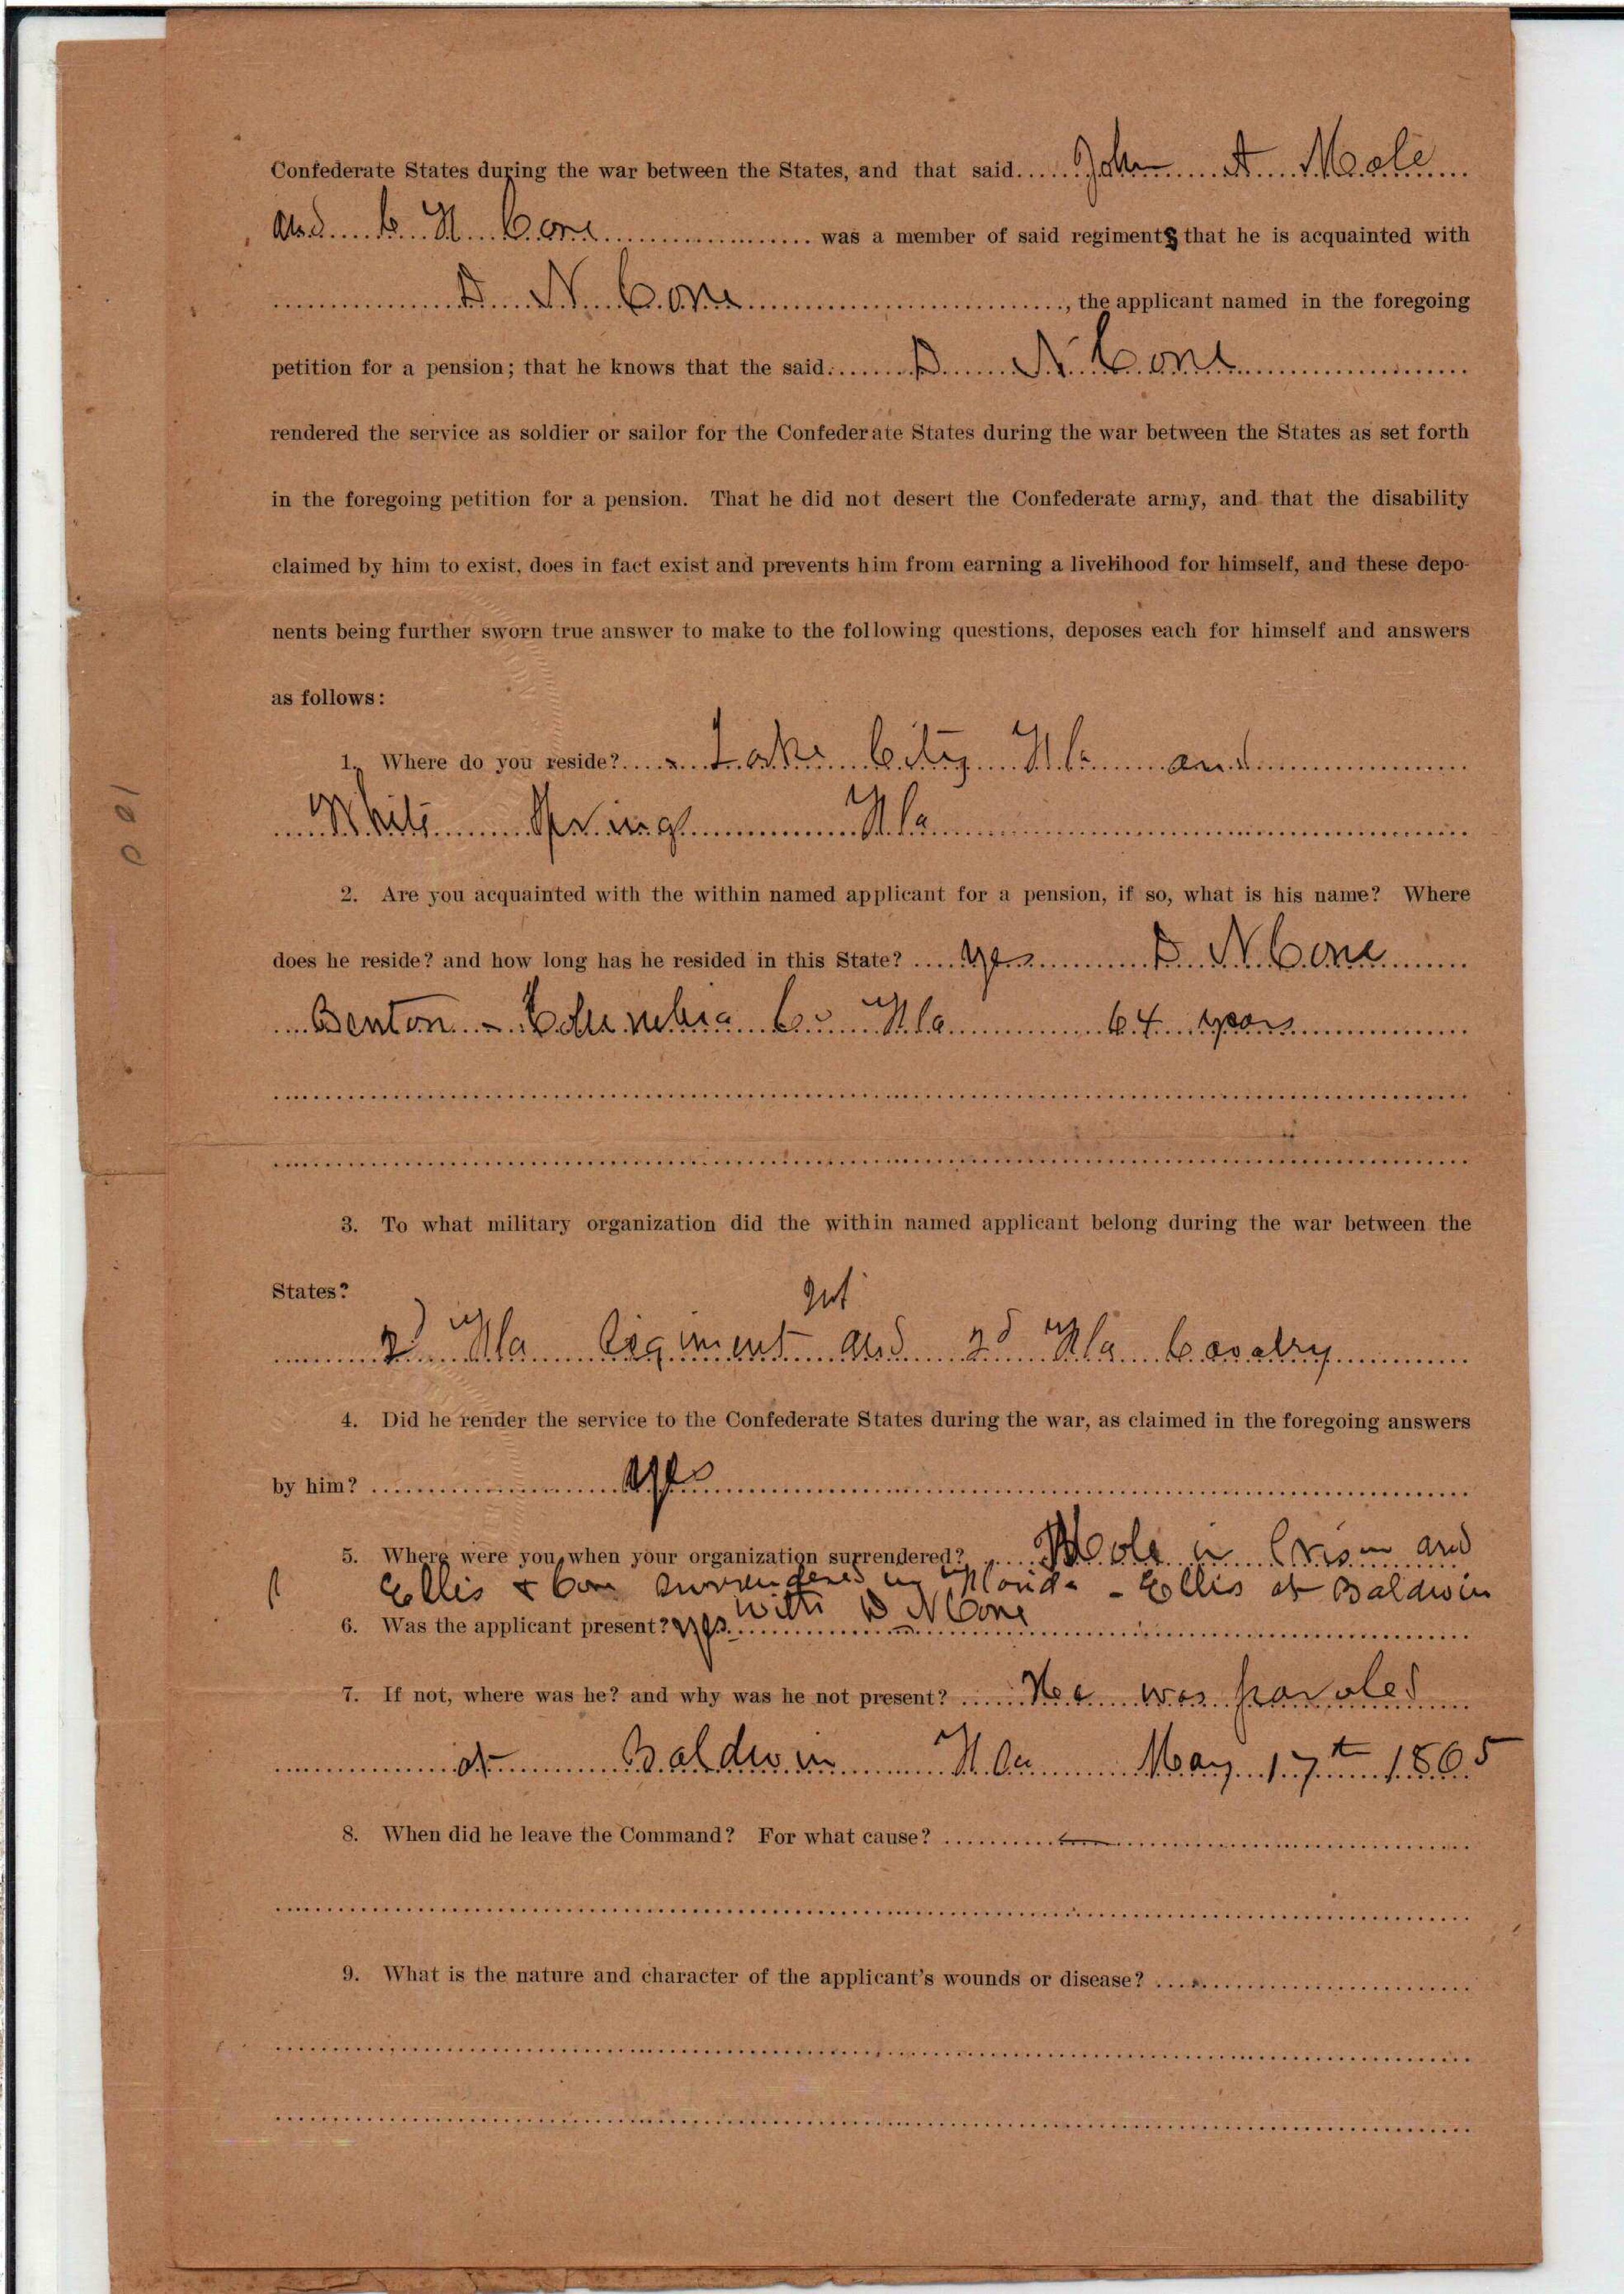 Confederate States during the war between the States, and that said John A Mole
and C H Cone was a member of said regiments that he is acquainted with
D N Cone, the applicant named in the foregoing
petition for a pension; that he knows that the said D N Cone
rendered the service as soldier or sailor for the Confederate States during the war between the States as set forth
in the foregoing petition for a pension. That he did not desert the Confederate army, and that the disability
claimed by him to exist, does in fact exist and prevents him from earning a livelihood for himself, and these depo-
nents being further sworn true answer to make to the following questions, deposes each for himself and answers
as follows:
1. Where do you reside? Lake City Fla and
White Springs Fla
2. Are you acquainted with the within named applicant for a pension, if so, what is his name? Where
does he reside? and how long has he resided in this State? yes D N Cone
Benton - Columbia Co Fla 64 years
3. To what military organization did the within named applicant belong during the war between the
States?
2d Fla Regiment Inf and 2d Fla Cavalry
4. Did he render the service to the Confederate States during the war, as claimed in the foregoing answers
by him? yes
5. Where were you, when your organization surrendered? Mole in Prison and
Ellis & Cone surrendered in Florida - Ellis at Baldwin
with D N Cone
6. Was the applicant present? yes
7. If not, where was he? and why was he not present? Hee was paroled
at Baldwin Fla May 17th 1865
8. When did he leave the Command? For what cause? —
9. What is the nature and character of the applicant's wounds or disease?